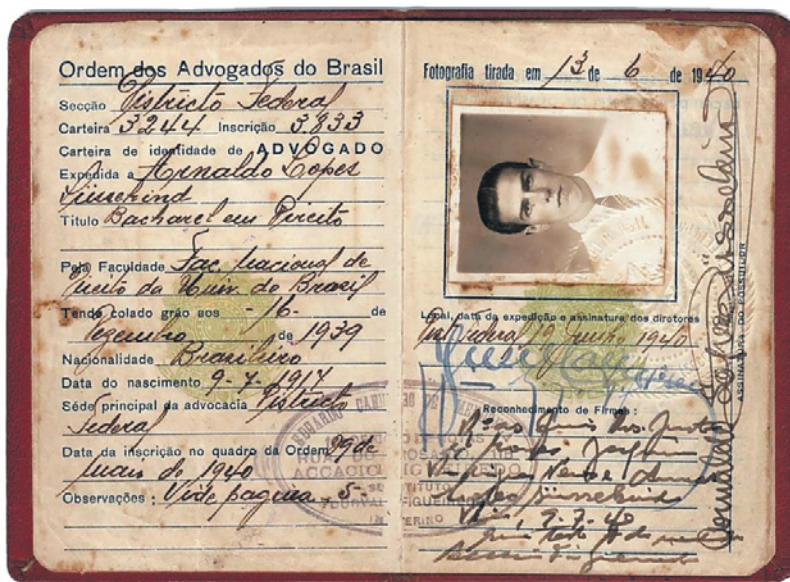 Ordem dos Advogados do Brasil
Secção Districto Federal
Carteira 3244 Inscrição 3.833
Carteira de identidade de ADVOGADO
Expedida a Arnaldo Lopes
Süssekind
Titulo Bacharel em Direito
Pela Faculdade Fac. Nacional de
Direito da Univ. do Brasil
Tendo colado gráo aos -16- de
Dezembro de 1939
Nacionalidade Brasileiro
Data do nascimento 9-7-1917
Séde principal da advocacia Districto
Federal
Data da inscrição no quadro da Ordem 29 de
Maio de 1940
Observações : Vide pagina -5-
Fotografia tirada em 13 de 6 de 1940
Local, data da expedição e assinatura dos diretores
Dist. Federal 19 Junho 1940
Reconhecimento de Firmas :
9-7-40
ASSINATURA DO POSSUIDOR
ACCACIO
SUBSTITUTO
DURVAL FIGUEIREDO
INTERINO